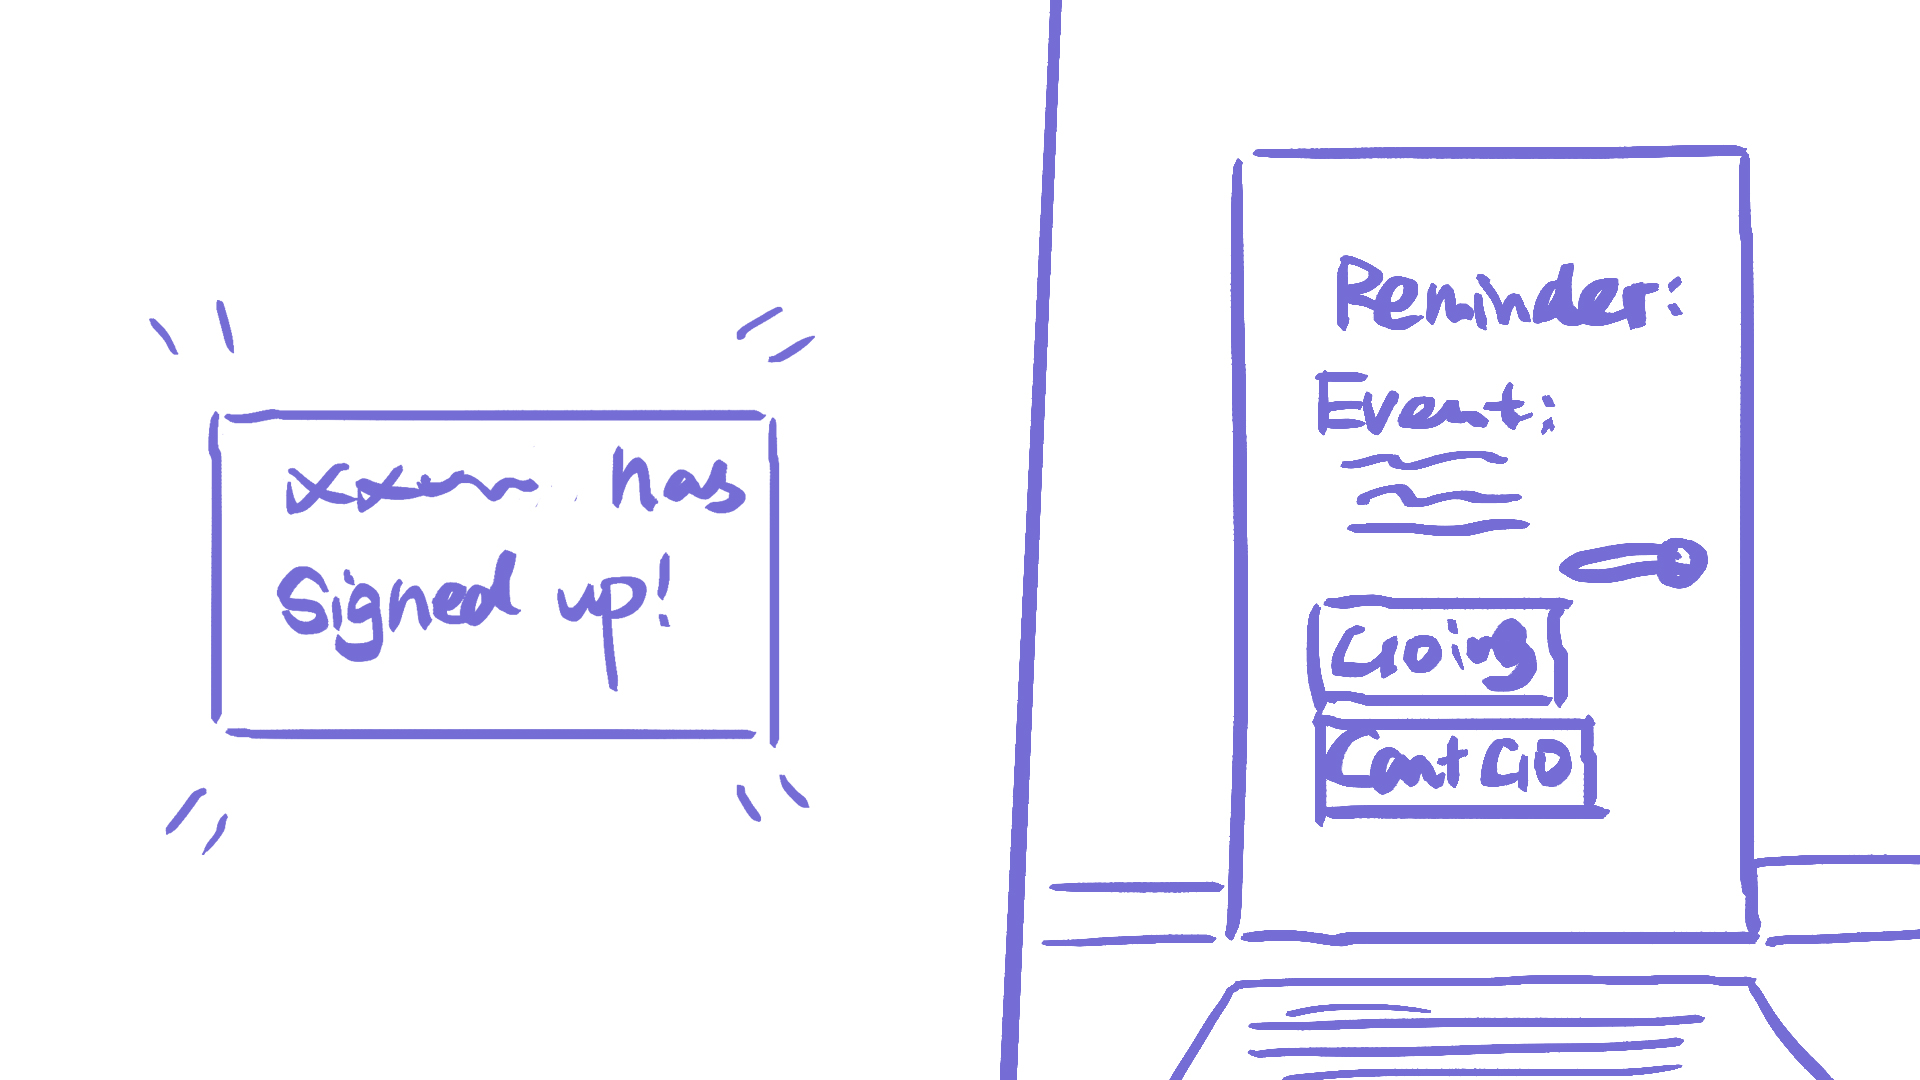 has
Signed up!
Reminder:
Event:
Going
Cant Go